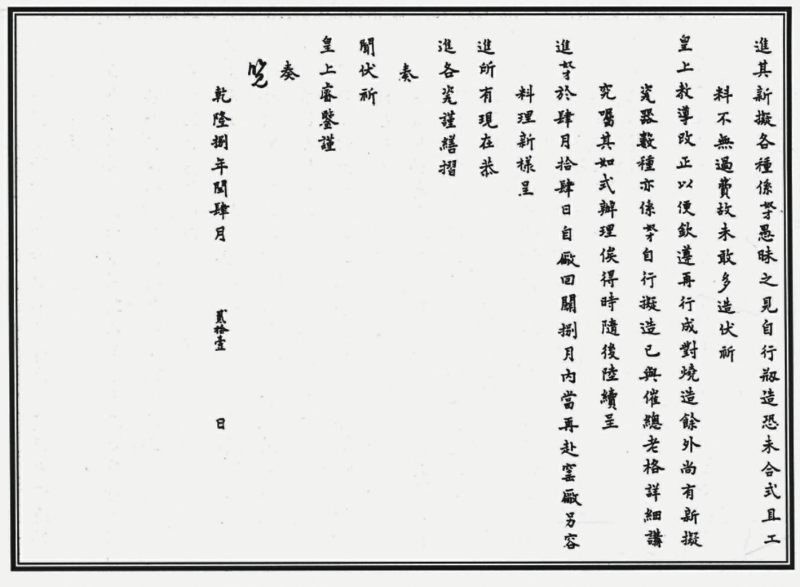 進其新擬各種係奴才愚昧之見自行瓶造恐未合式且工
料不無過費故未敢多造伏祈
皇上教導改正以便欽遵再行成對燒造餘外尚有新擬
瓷器數種亦係奴才自行擬造已與催總老格詳細講
究囑其如式辦理俟得時隨後陸續呈
進奴才於肆月拾肆日自廠回關捌月內當再赴窯廠另容
料理新樣呈
進所有現在恭
進各瓷謹繕摺
奏
聞伏祈
皇上睿鑒謹
奏
覽
乾隆捌年閏肆月 貳拾壹 日